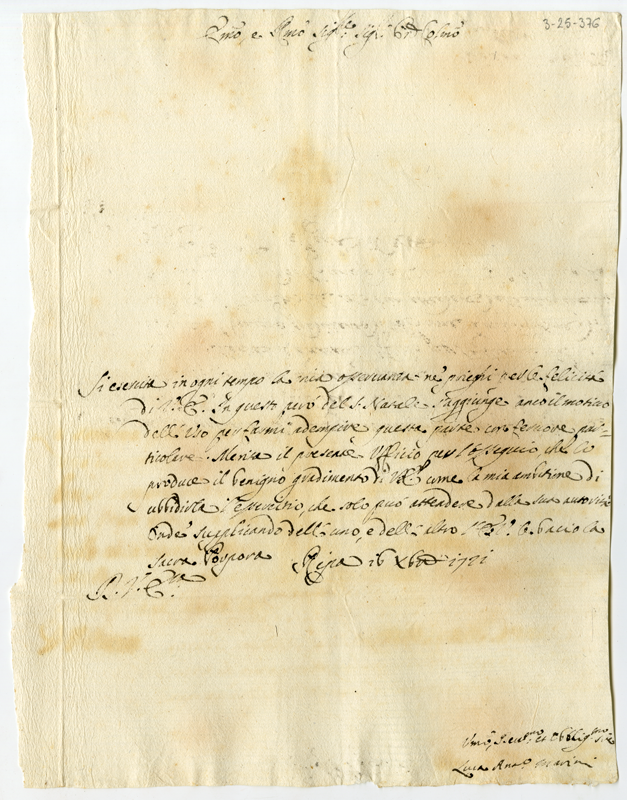 3-25-376
Emo e Rmo Sigre Sigr Pne Colmo
Si esercita in ogni tempo la mia osservanza ne' prieghi per le felicità
di V. E. In questo però del S. Natale s'aggiunge anco il motivo
dell'Uso per farmi adempire questa parte con fervore par-
ticolare. Merita il presente Ufficio per l'ossequio, che lo
produce il benigno gradimento di V. E. come la mia ambitione di
ubbidirla l'esercitio, che solo può attendere dalla sua autorità
Onde supplicando dell'uno, e dell'altro V. E. le bacio la
Sacra Porpora Ripa 16 Xbre 1721
D. V. E.
Umo, Devmo et Obbligmo
Luca Anto Marini